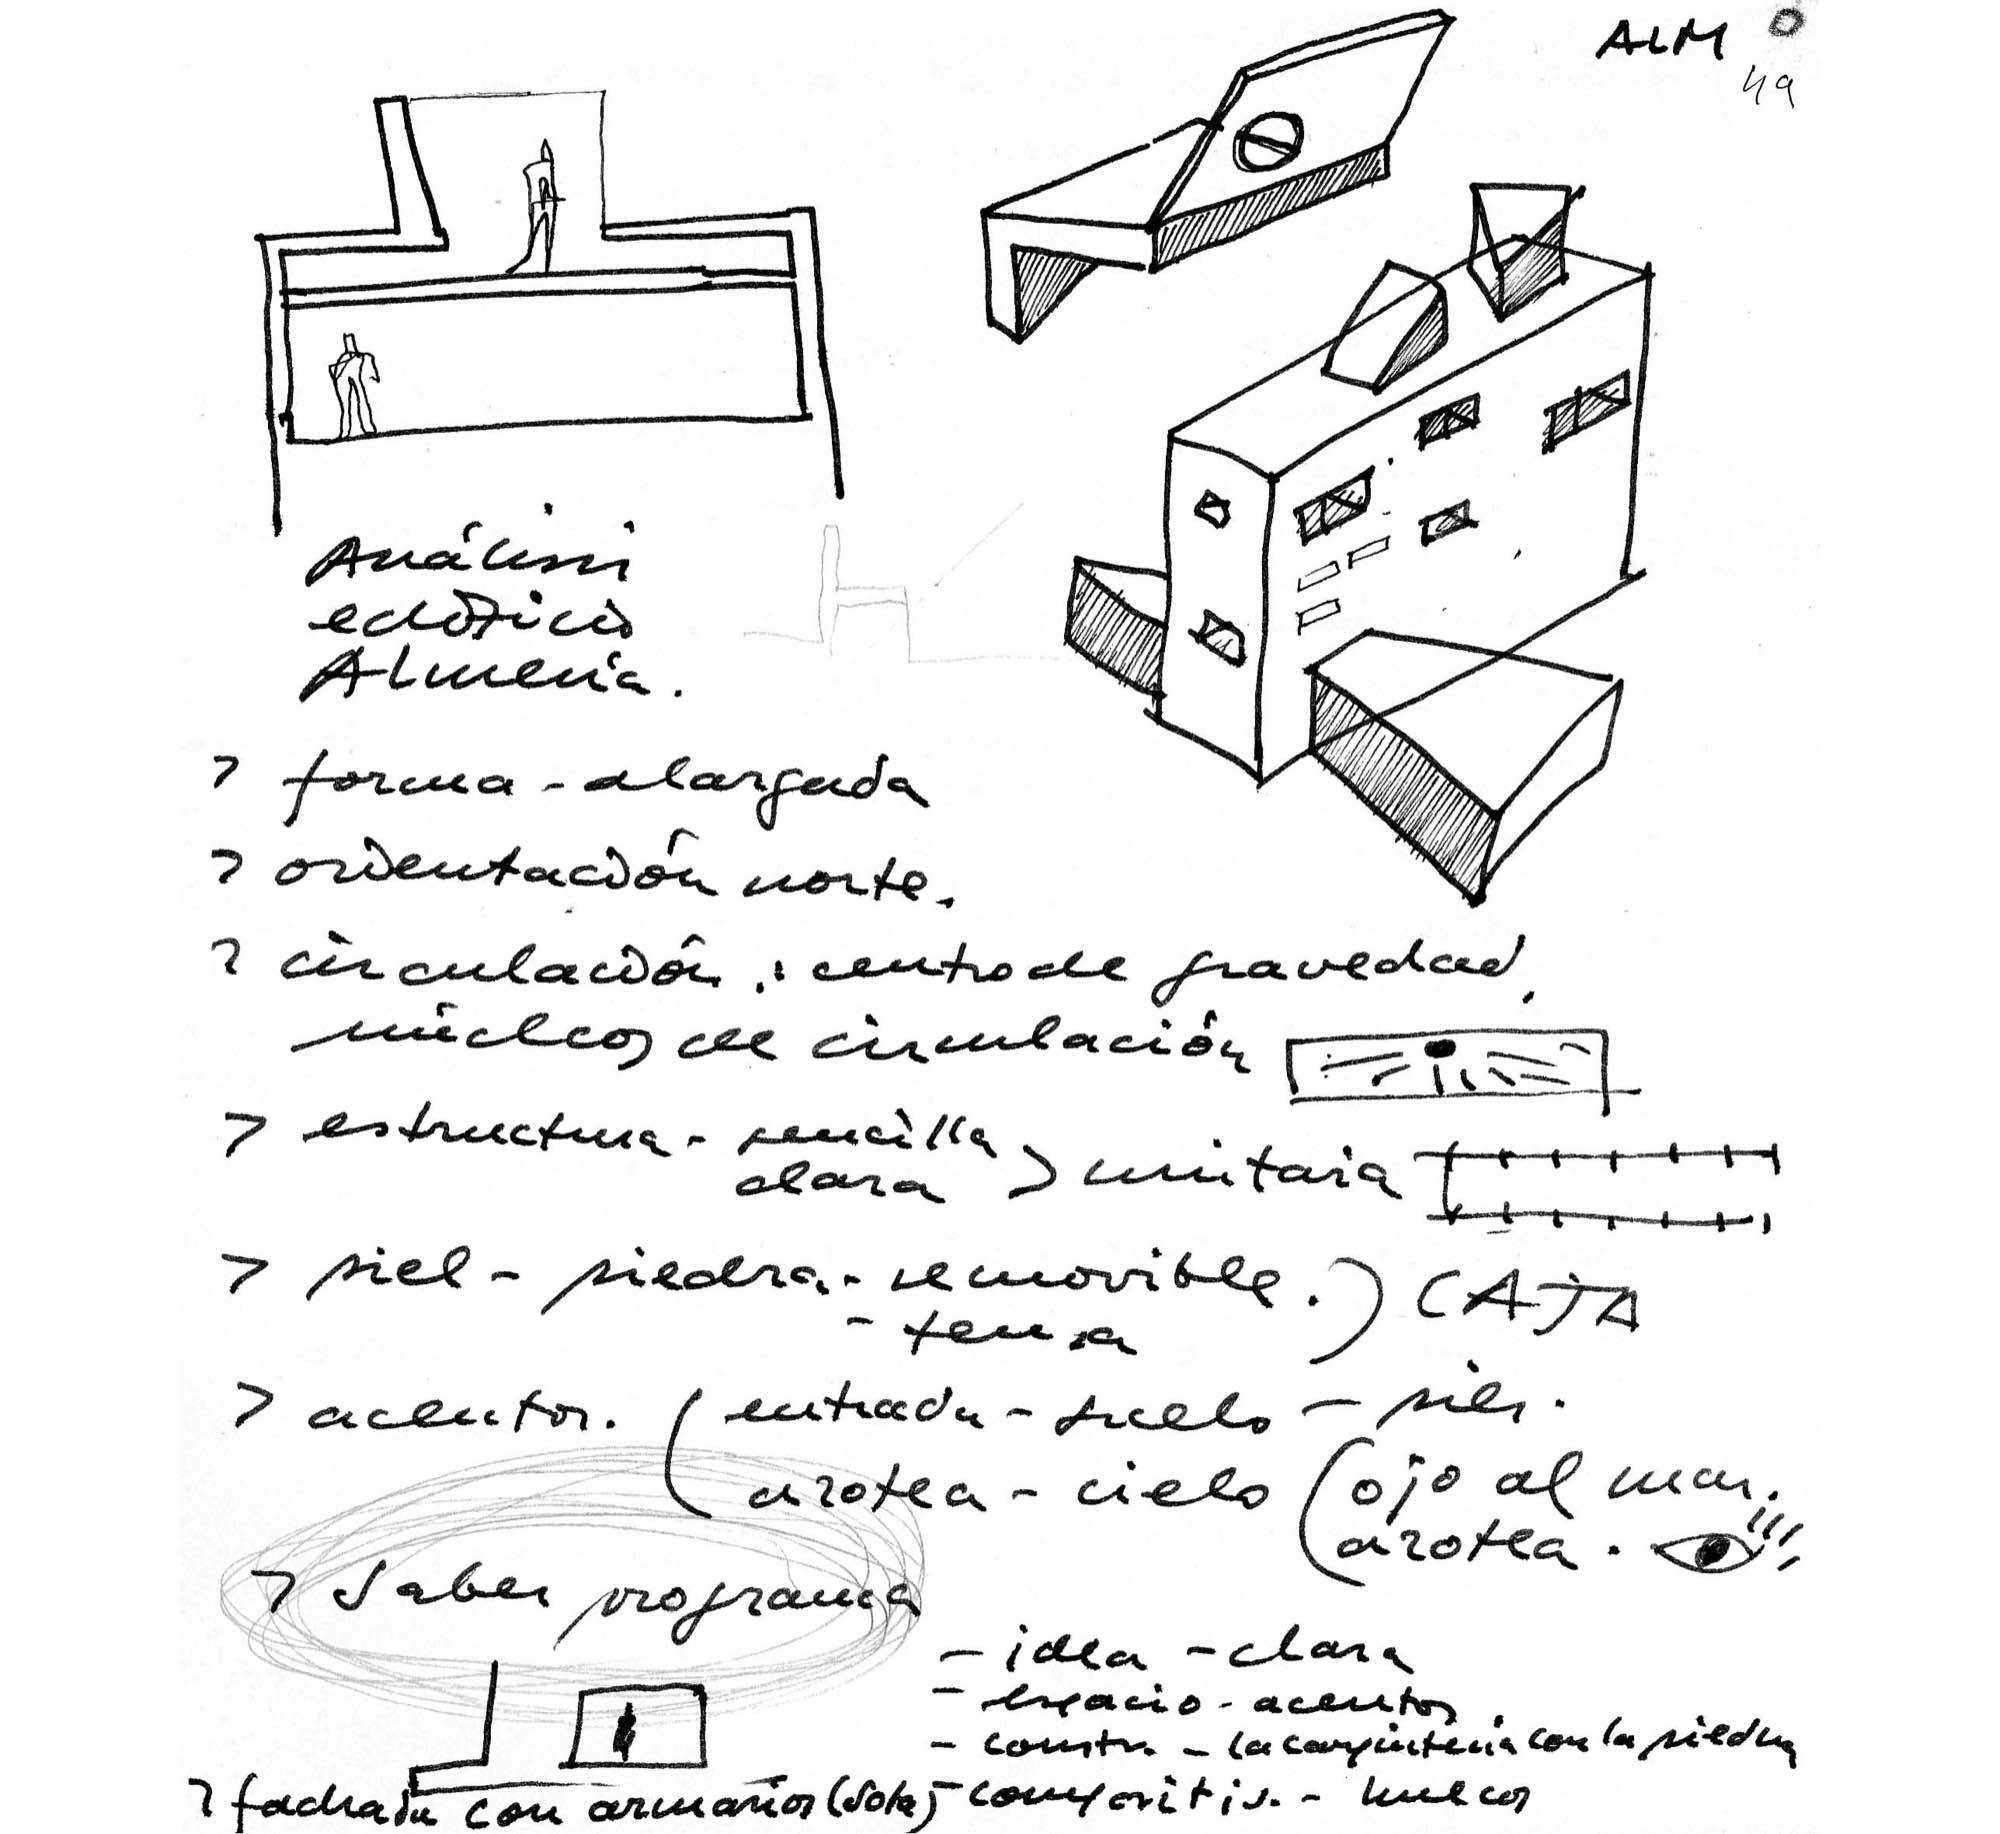 ALM
49
Análisis
edificio
Almería.
> forma - alargada
> orientación norte.
> circulación : centro de gravedad,
núcleos de circulación
> estructura - sencilla
clara > unitaria
> piel - piedra - removible.) CAJA
- tensa
> acentos. (entrada - suelo -
azotea - cielo (ojo al mar.
azotea.
> Saber programa
- idea - clara
- espacio - acentos
- constr. - la carpintería con la piedra
> fachada con armarios (Sota) - compositiv. - huecos